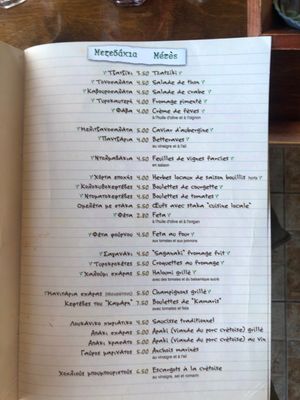 Μεζεδάκια Mézès
Τζατζίκι 3.50 Tzatziki
Τονοσαλάτα 4.50 Salade de thon
Καβουροσαλάτα 4.50 Salade de crabe
Τυροκαυτερή 4.00 Fromage pimenté
Φάβα 4.00 Crème de fèves
à l'huile d'olive et à l'oignon
Μελιτζανοσαλάτα 5.00 Caviar d'aubergine
Παντζάρια 4.00 Betteraves
au vinaigre et à l'ail
Ντολμαδάκια 4.50 Feuilles de vignes farcies
en saison
Χόρτα εποχής 4.00 Herbes locaux de saison bouillis
Κολοκυθοκεφτέδες 5.00 Boulettes de courgette
Ντοματοκεφτέδες 5.00 Boulettes de tomates
Ομελέτα με στάκα 5.50 Œuft avec staka "cuisine locale"
Φέτα 2.80 Feta
à l'huile d'olive et à l'origan
Φέτα φούρνου 4.50 Feta au four
aux tomates et aux poivrons
Σαγανάκι 4.50 "Saganaki" fromage frit
Τυροκροκέτες 5.50 Croquettes au fromage
Χαλούμι σχάρας 5.50 Halomi grillé
avec des tomates et du balsamique sucré
Μανιτάρια σχάρας 5.50 Champignons grillés
Κεφτέδες του "Καμάρη" 7.50 Boulettes de "Kamaris"
avec tomates et feta
Λουκάνικο χωριάτικο 4.50 Saucisse traditionnel
Απάκι σχάρας 5.50 Apaki (viande du porc crétoise) grillé
Απάκι κρασάτο 5.50 Apaki (viande du porc crétoise) au vin
Γαύρος μαρινάτος 5.00 Anchois marinés
au vinaigre et à l'ail
Χοχλιούς μπουμπουριστούς 6.50 Escargots à la crétoise
au vinaigre, sel et romarin